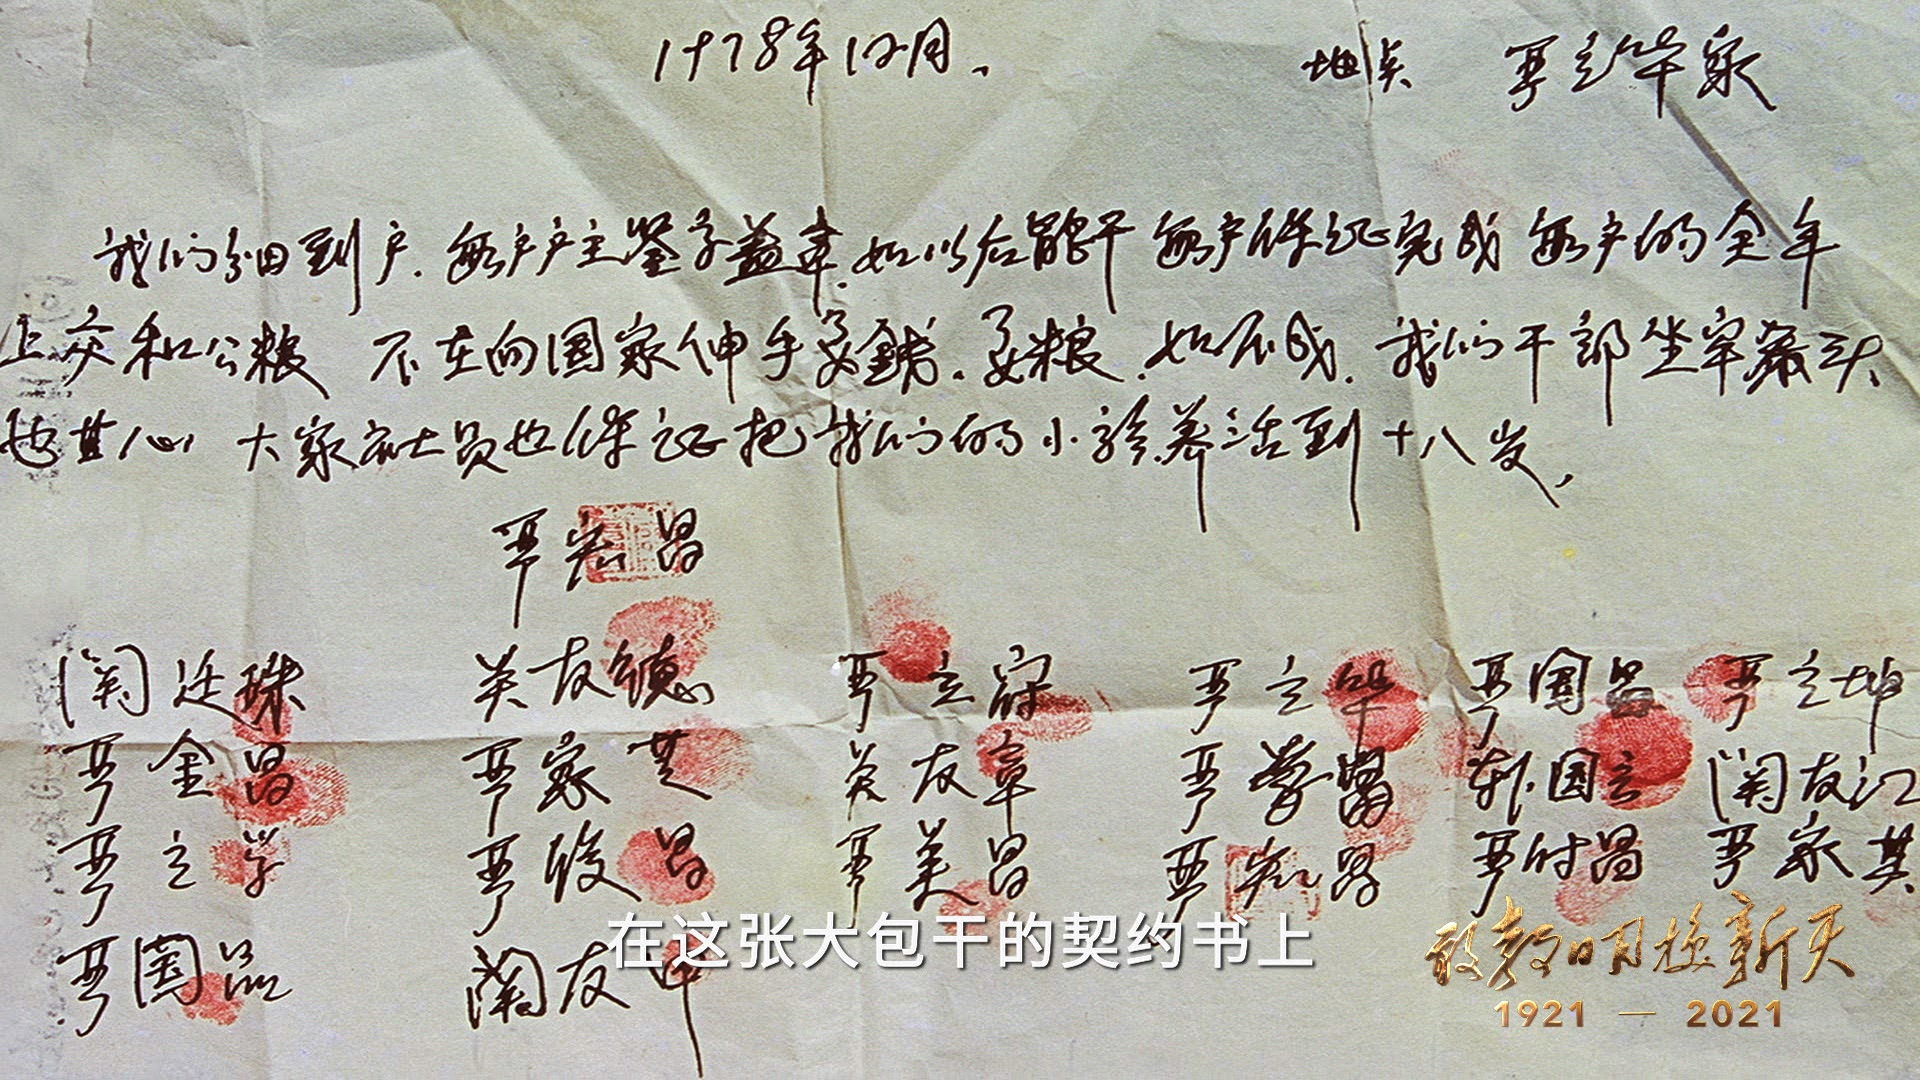 1978年12月. 地点 严立华家
我们分田到户.每户户主签字盖章.如以后能干每户保证完成每户的全年
上交和公粮 不在向国家伸手要钱.要粮.如不成.我们干部坐牢杀头
也甘心 大家社员也保证把我们的小孩养活到十八岁.
严宏昌
关廷珠 关友德 严立符 严立华 严国昌 严立坤
严金昌 严家芝 关友章 严学昌 韩国云 关友江
严立学 严俊昌 严美昌 严宏昌 严付昌 严家其
严国品 关友申
在这张大包干的契约书上
敢教日月换新天
1921 — 2021